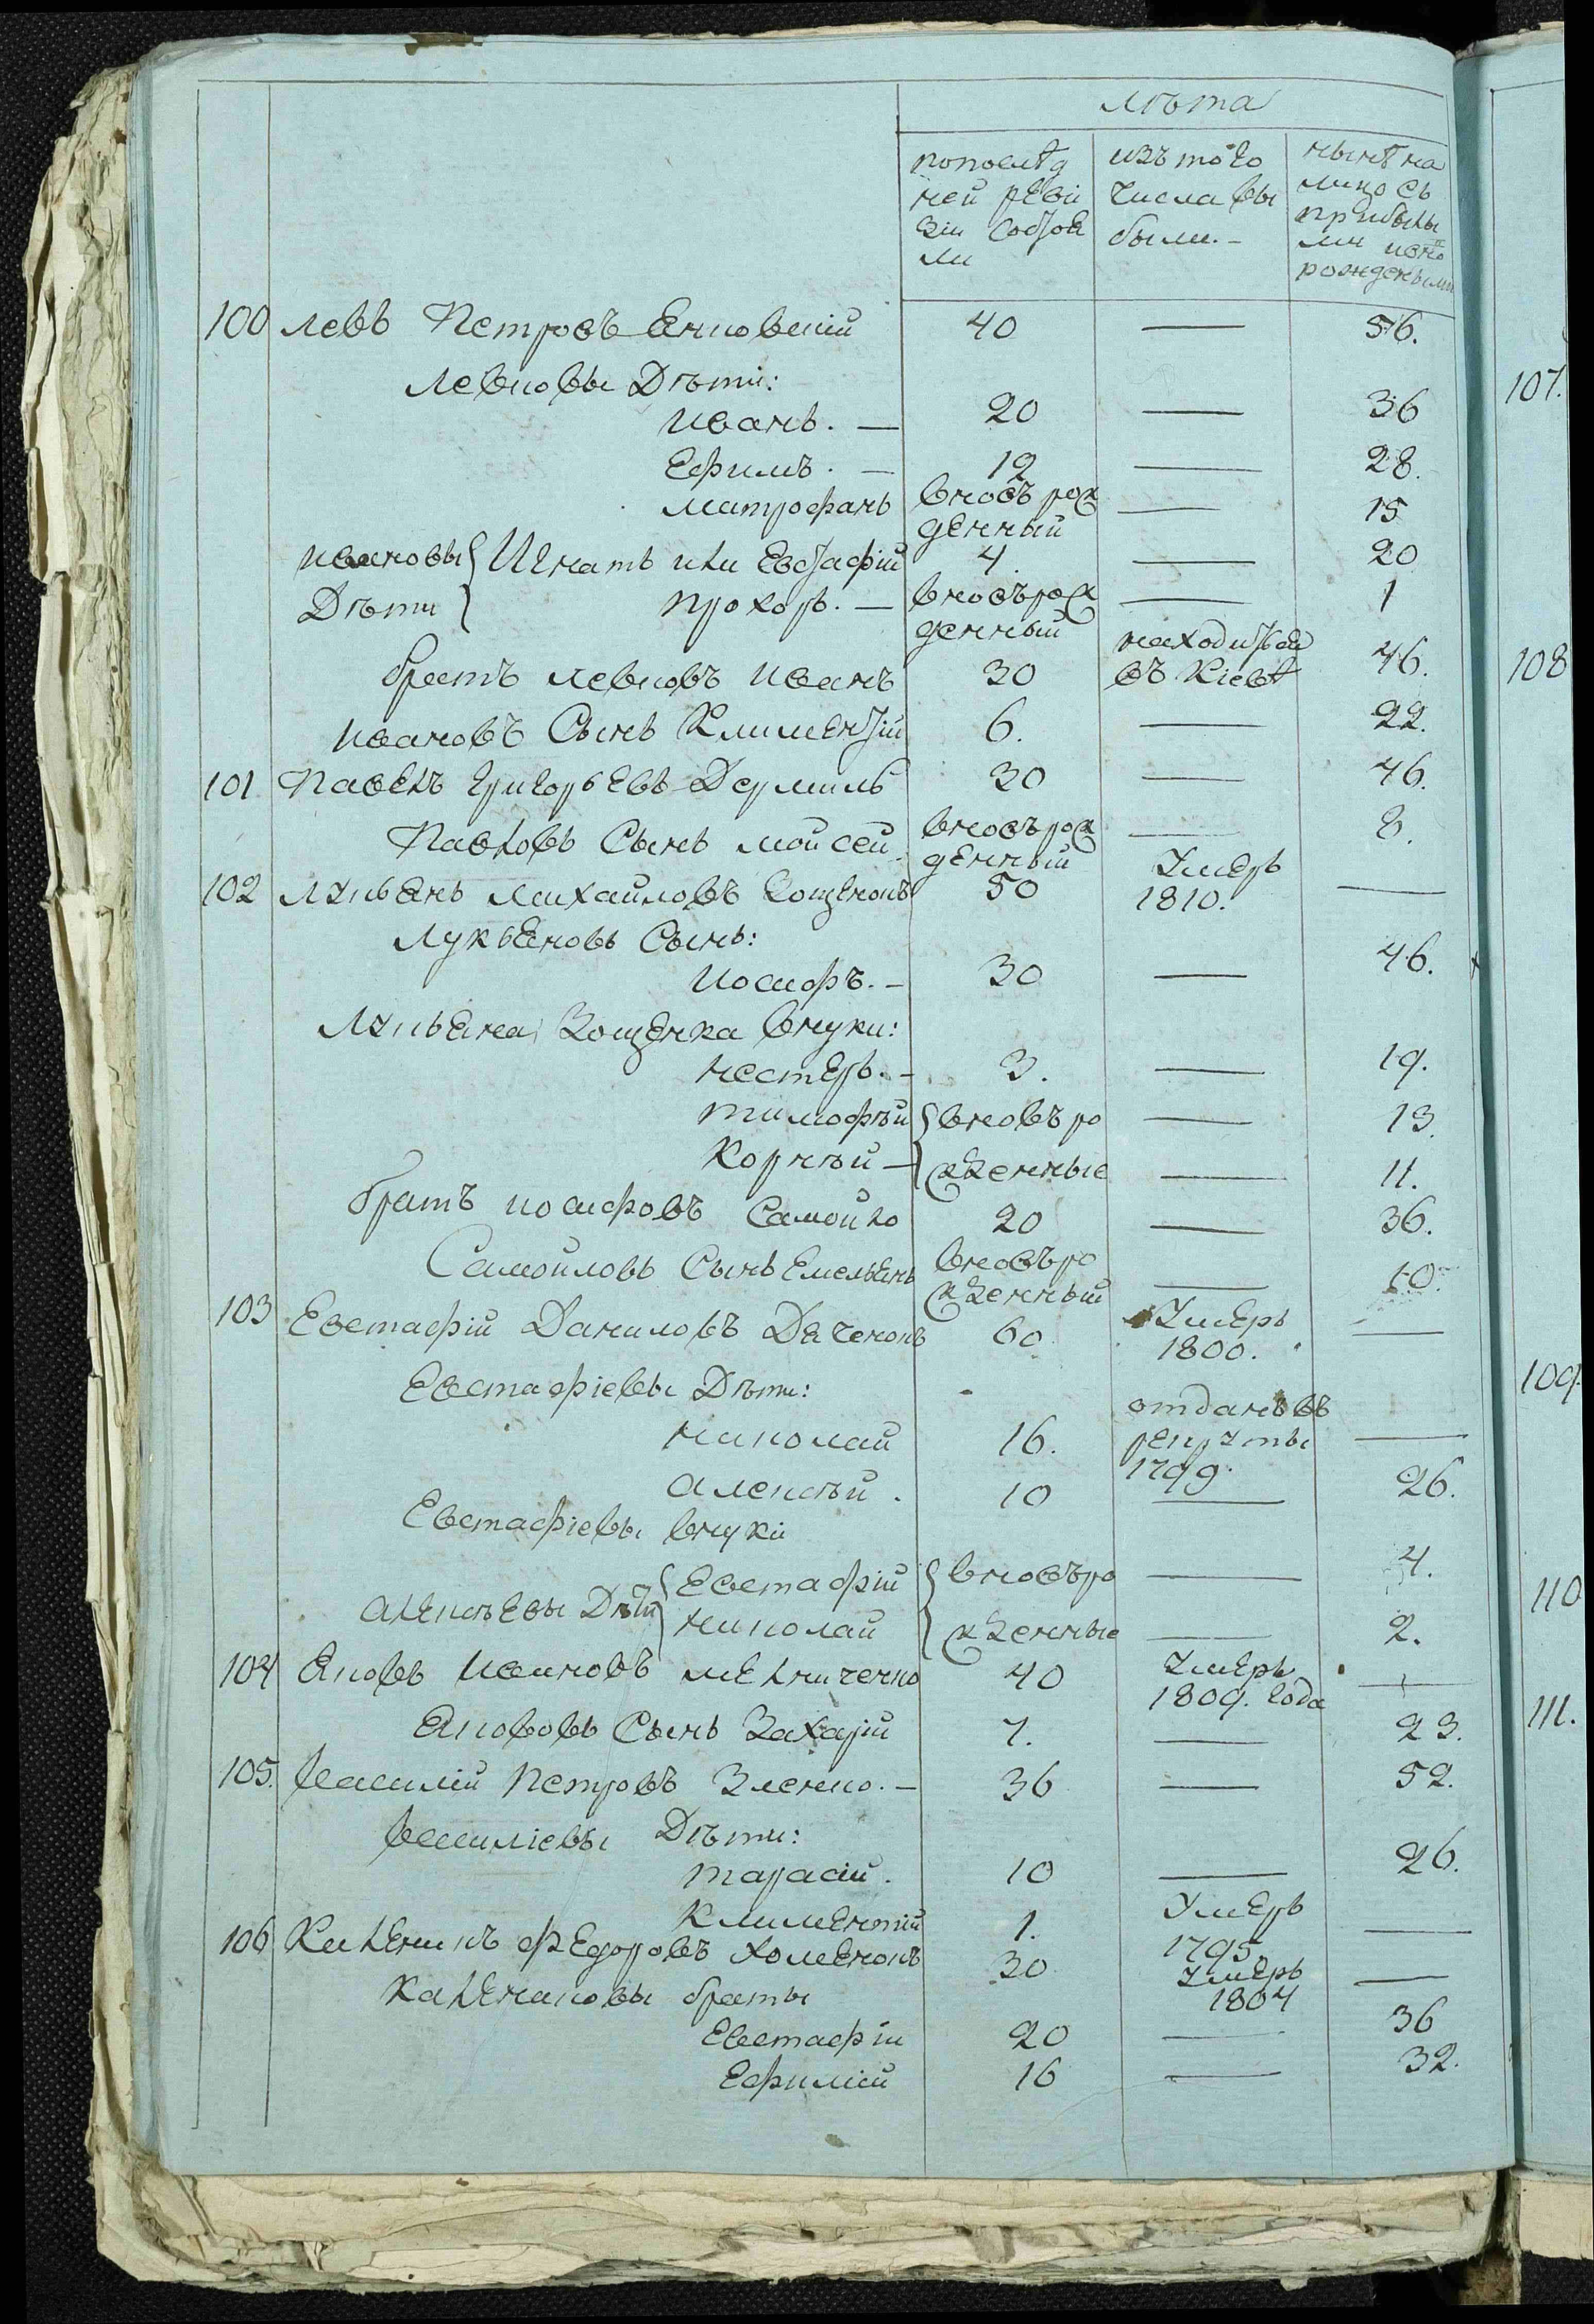 лѣта
попослѣд
ней реви
зіи состоя
ли
изъ того
числа вы
были. -
нынѣ на
лицо съ
прибылы
ми и вно
рожденными
100 левъ Петровъ Янковскій 40 — 56.
левковы Дѣти:
иванъ. — 20 — 36
Ефимъ. — 12 — 28.
митрофанъ вновъ рож — 15
денный
ивановы { Игнатъ или Евстафій 4. — 20
Дѣти } прохоръ. — вновърож — 1
денный
братъ левковъ иванъ 30 находится 46.
въ Кіевѣ
ивановъ Сынъ Климентій 6. — 22.
101 Павелъ григорьевъ 30 — 46.
Павловъ Сынъ мойсей вновърож — 8.
денный
102 лукьянъ михайловъ Зощенокъ 50 Умеръ —
1810.
Лукьяновъ Сынъ:
иосифъ. — 30 — 46.
Лукьяна Зощенка внуки:
нестеръ. — 3. — 19.
тимофѣй { вновъ ро — 13.
Корнѣй — } жденные — 11.
братъ иосифовъ Самойло 20 — 36.
Самойловъ Сынъ Емельянъ вновъро — 10.
жденный
103 Евстафій Даниловъ Дяченокъ 60 Умеръ —
1800.
Евстафіевы Дѣти:
николай 16. отданъ въ —
рекруты
1799.
алексѣй. 10 — 26.
Евстафіевы внуки
алексѣевы Дѣти { Евстафій { вновъро — 4.
николай } жденные — 2.
104 Яковъ ивановъ мельниченко 40 Умеръ —
1809. года
Якововъ Сынъ Захарій 7. — 23.
105. василій Петровъ Зленко. — 36 — 52.
василіевы Дѣти:
тарасій. 10 — 26.
Климентій 1. Умеръ —
1795.
106 Каленикъ федоровъ хоменокъ 30 Умеръ —
1804
Калениковы браты
Евстафій 20 — 36
Ефимій 16 — 32.
107.
108
109.
110
111.